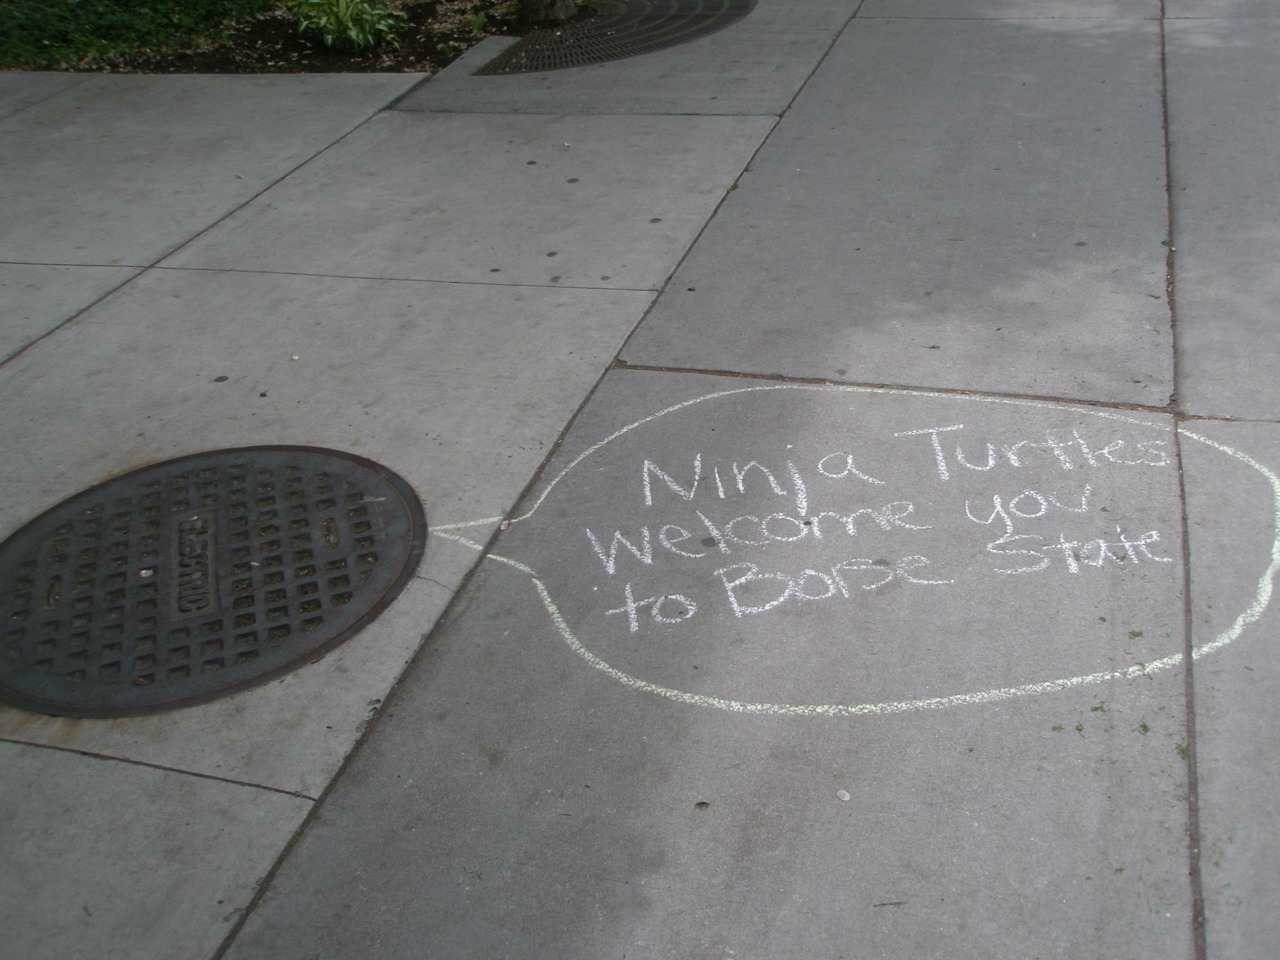 ELECTRIC
Ninja Turtles
welcome you
to Boise State